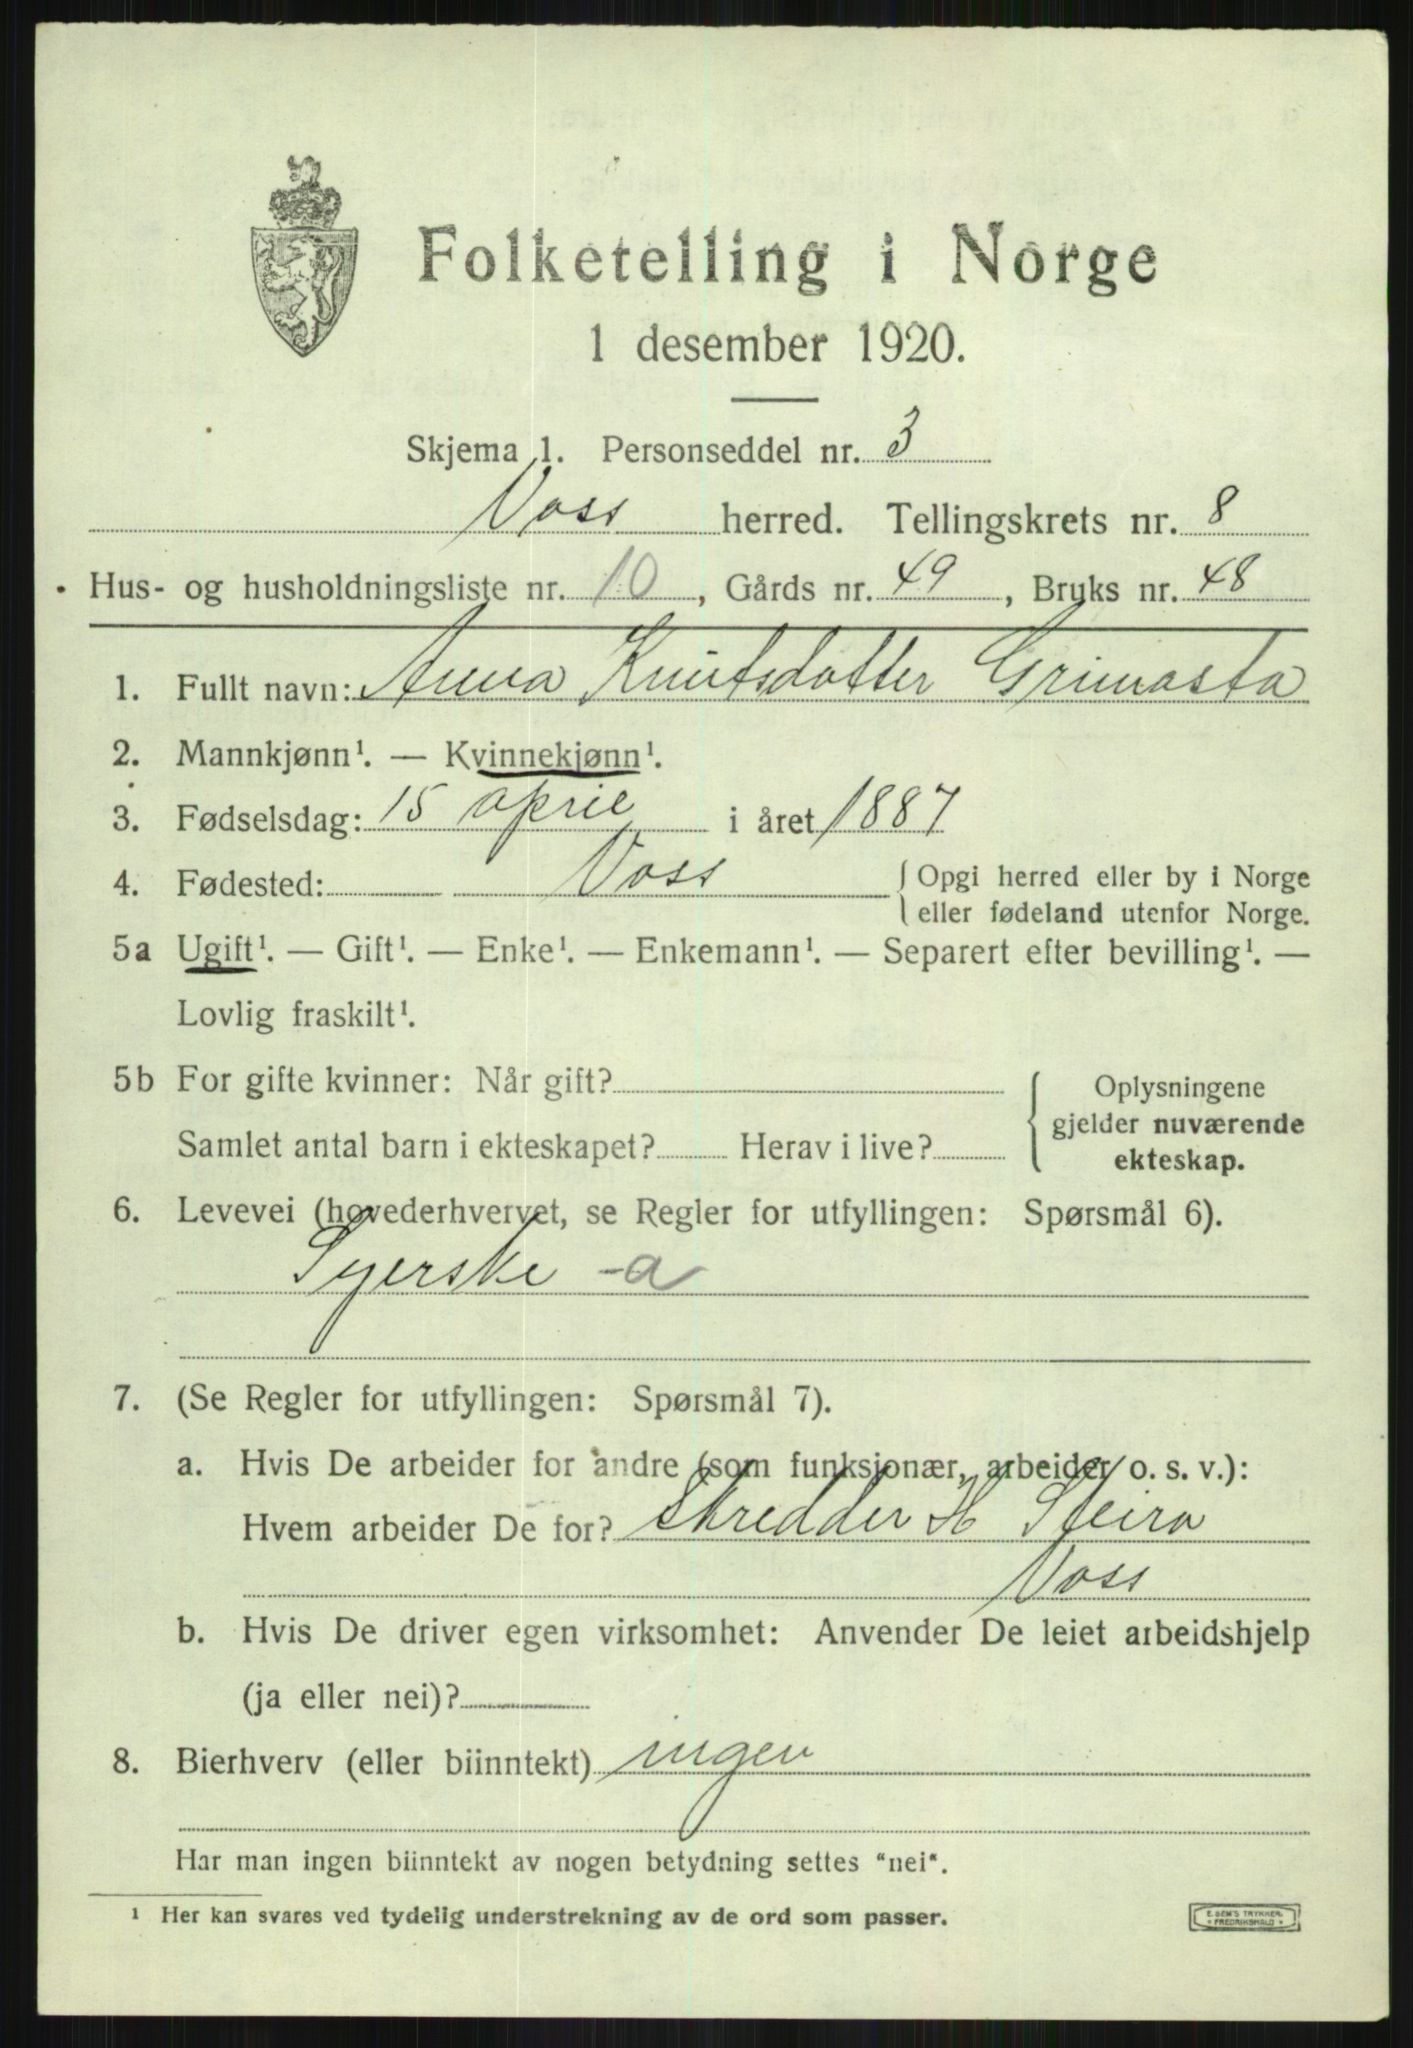 Folketelling i Norge
1 desember 1920.
Skjema 1. Personseddel nr. 3
Voss herred. Tellingskrets nr. 8
Hus- og husholdningsliste nr. 10, Gårds nr. 49, Bruks nr. 48
1. Fullt navn: Anna Knutsdotter Grimasta
2. Mannkjønn¹. — Kvinnekjønn¹.
3. Fødselsdag: 15 april i året 1887
4. Fødested: Voss { Opgi herred eller by i Norge
eller fødeland utenfor Norge.
5a Ugift¹. — Gift¹. — Enke¹. — Enkemann¹. — Separert efter bevilling¹. —
Lovlig fraskilt¹.
5b For gifte kvinner: Når gift? { Oplysningene
gjelder nuværende
Samlet antal barn i ekteskapet? Herav i live?
ekteskap.
6. Levevei (hovederhvervet, se Regler for utfyllingen: Spørsmål 6).
Syerske -a
7. (Se Regler for utfyllingen: Spørsmål 7).
a. Hvis De arbeider for andre (som funksjonær, arbeider o. s. v.):
Hvem arbeider De for? Skredder H Steira
Voss
b. Hvis De driver egen virksomhet: Anvender De leiet arbeidshjelp
(ja eller nei)?
8. Bierhverv (eller biinntekt) ingen
Har man ingen biinntekt av nogen betydning settes "nei".
¹ Her kan svares ved tydelig understrekning av de ord som passer.
E. SEM'S TRYKKERI
FREDRIKSHALD